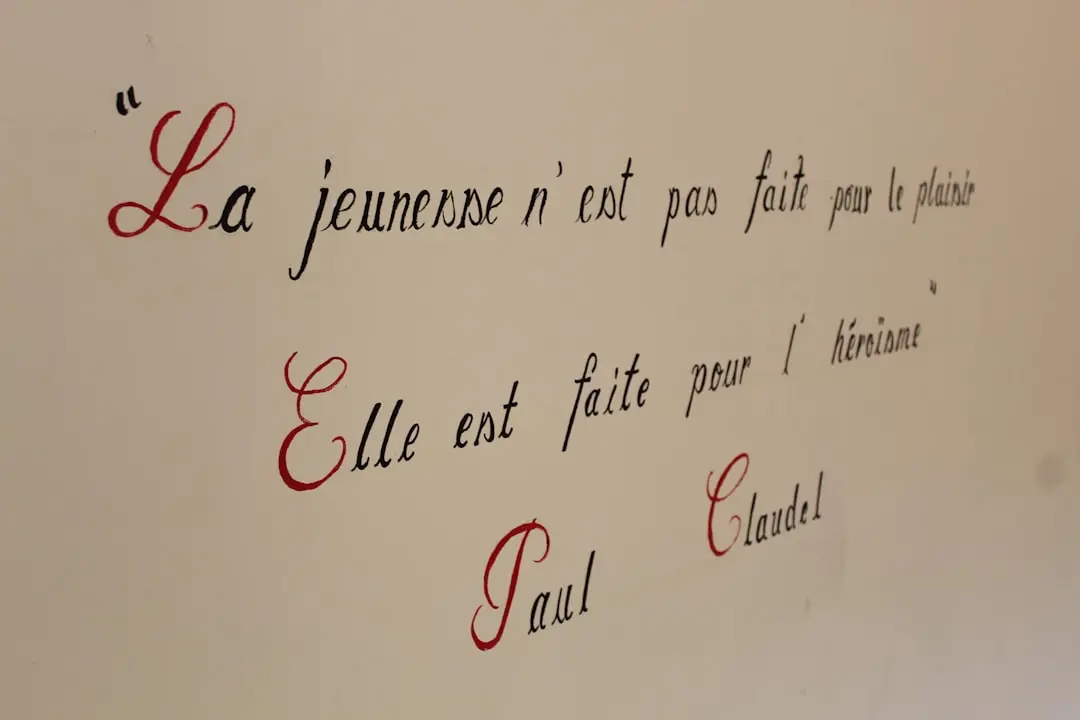 "La jeunesse n'est pas faite pour le plaisir
Elle est faite pour l'héroïsme"
Paul Claudel